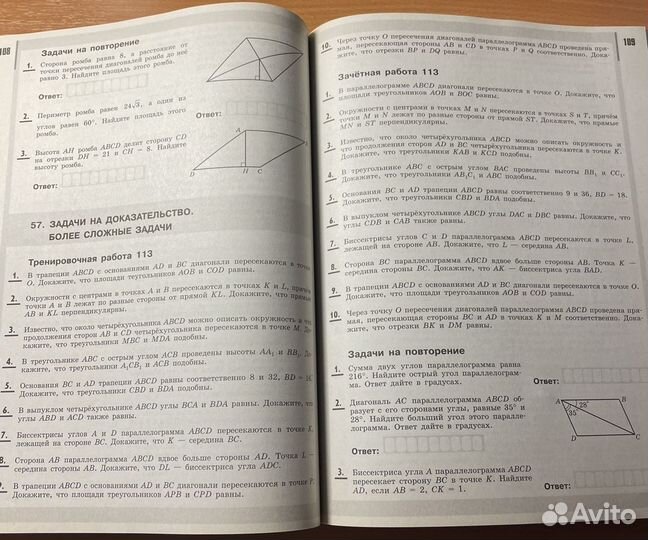 108
Задачи на повторение
1. Сторона ромба равна 8, а расстояние от
точки пересечения диагоналей ромба до неё
равно 3. Найдите площадь этого ромба.
Ответ:
2. Периметр ромба равен 24√3, а один из
углов равен 60°. Найдите площадь этого
ромба.
Ответ:
3. Высота AH ромба ABCD делит сторону CD
на отрезки DH = 21 и CH = 8. Найдите
высоту ромба.
Ответ:
A
B
D
H
C
57. ЗАДАЧИ НА ДОКАЗАТЕЛЬСТВО.
БОЛЕЕ СЛОЖНЫЕ ЗАДАЧИ
Тренировочная работа 113
1. В трапеции ABCD с основаниями AD и BC диагонали пересекаются в точке
O. Докажите, что площади треугольников AOB и COD равны.
2. Окружности с центрами в точках A и B пересекаются в точках K и L, причём
точки A и B лежат по разные стороны от прямой KL. Докажите, что прямые
AB и KL перпендикулярны.
3. Известно, что около четырёхугольника ABCD можно описать окружность и что
продолжения сторон AB и CD четырёхугольника пересекаются в точке M. До-
кажите, что треугольники MBC и MDA подобны.
4. В треугольнике ABC с острым углом ACB проведены высоты AA₁ и BB₁. До-
кажите, что треугольники A₁CB₁ и ACB подобны.
5. Основания BC и AD трапеции ABCD равны соответственно 8 и 32, BD =
Докажите, что треугольники CBD и BDA подобны.
6. В выпуклом четырёхугольнике ABCD углы BCA и BDA равны. Докажите, что
углы ABD и ACD также равны.
7. Биссектрисы углов A и D параллелограмма ABCD пересекаются в точке K,
лежащей на стороне BC. Докажите, что K — середина BC.
8. Сторона AB параллелограмма ABCD вдвое больше стороны AD. Точка L —
середина стороны AB. Докажите, что DL — биссектриса угла ADC.
9. В трапеции ABCD с основаниями AD и BC диагонали пересекаются в точке P.
Докажите, что площади треугольников APB и CPD равны.
109
10. Через точку O пересечения диагоналей параллелограмма ABCD проведена пря-
мая, пересекающая стороны AB и CD в точках P и Q соответственно. Дока-
жите, что отрезки BP и DQ равны.
Зачётная работа 113
1. В параллелограмме ABCD диагонали пересекаются в точке O. Докажите, что
площади треугольников AOB и BOC равны.
2. Окружности с центрами в точках M и N пересекаются в точках S и T, причём
точки M и N лежат по разные стороны от прямой ST. Докажите, что прямые
MN и ST перпендикулярны.
3. Известно, что около четырёхугольника ABCD можно описать окружность и
что продолжения сторон AD и BC четырёхугольника пересекаются в точке K.
Докажите, что треугольники KAB и KCD подобны.
4. В треугольнике ABC с острым углом BAC проведены высоты BB₁ и CC₁.
Докажите, что треугольники AB₁C₁ и ABC подобны.
5. Основания BC и AD трапеции ABCD равны соответственно 9 и 36, BD = 18.
Докажите, что треугольники CBD и BDA подобны.
6. В выпуклом четырёхугольнике ABCD углы DAC и DBC равны. Докажите, что
углы CDB и CAB также равны.
7. Биссектрисы углов C и D параллелограмма ABCD пересекаются в точке L,
лежащей на стороне AB. Докажите, что L — середина AB.
8. Сторона BC параллелограмма ABCD вдвое больше стороны AB. Точка K —
середина стороны BC. Докажите, что AK — биссектриса угла BAD.
9. В трапеции ABCD с основаниями AD и BC диагонали пересекаются в точке O.
Докажите, что площади треугольников AOB и COD равны.
10. Через точку O пересечения диагоналей параллелограмма ABCD проведена пря-
мая, пересекающая стороны BC и AD в точках K и M соответственно. Дока-
жите, что отрезки BK и DM равны.
Задачи на повторение
1. Сумма двух углов параллелограмма равна
216°. Найдите острый угол параллелограм-
ма. Ответ дайте в градусах.
Ответ:
2. Диагональ AC параллелограмма ABCD об-
разует с его сторонами углы, равные 35° и
28°. Найдите больший угол этого паралле-
лограмма. Ответ дайте в градусах.
Ответ:
A
B
28°
35°
D
C
3. Биссектриса угла A параллелограмма ABCD
пересекает сторону BC в точке K. Найдите
AD, если AB = 2, CK = 1.
Ответ:
Avito